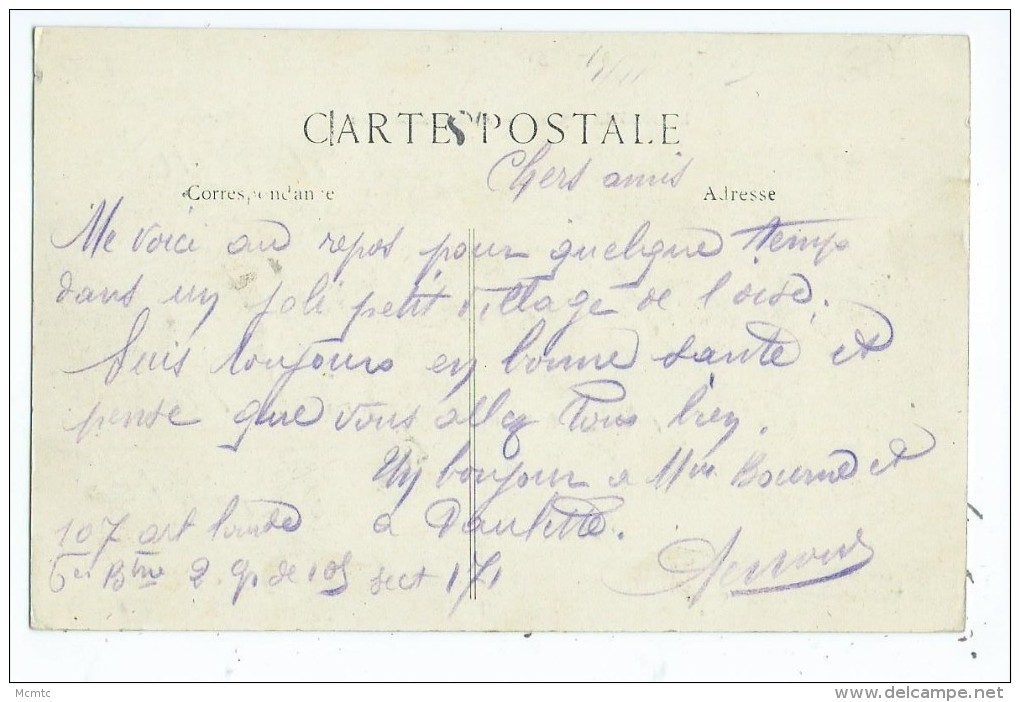 CARTE POSTALE
Correspondance
Adresse
Chers amis
Me voici au repos pour quelque temps
dans un joli petit village de l'oise.
Suis toujours en bonne santé et
pense que vous allez tous bien.
Un bonjour a Mme et
a Paulette.
107 art lourde
Brie 2 gp de 105 sect 171
Mcmtc
delcampe.net